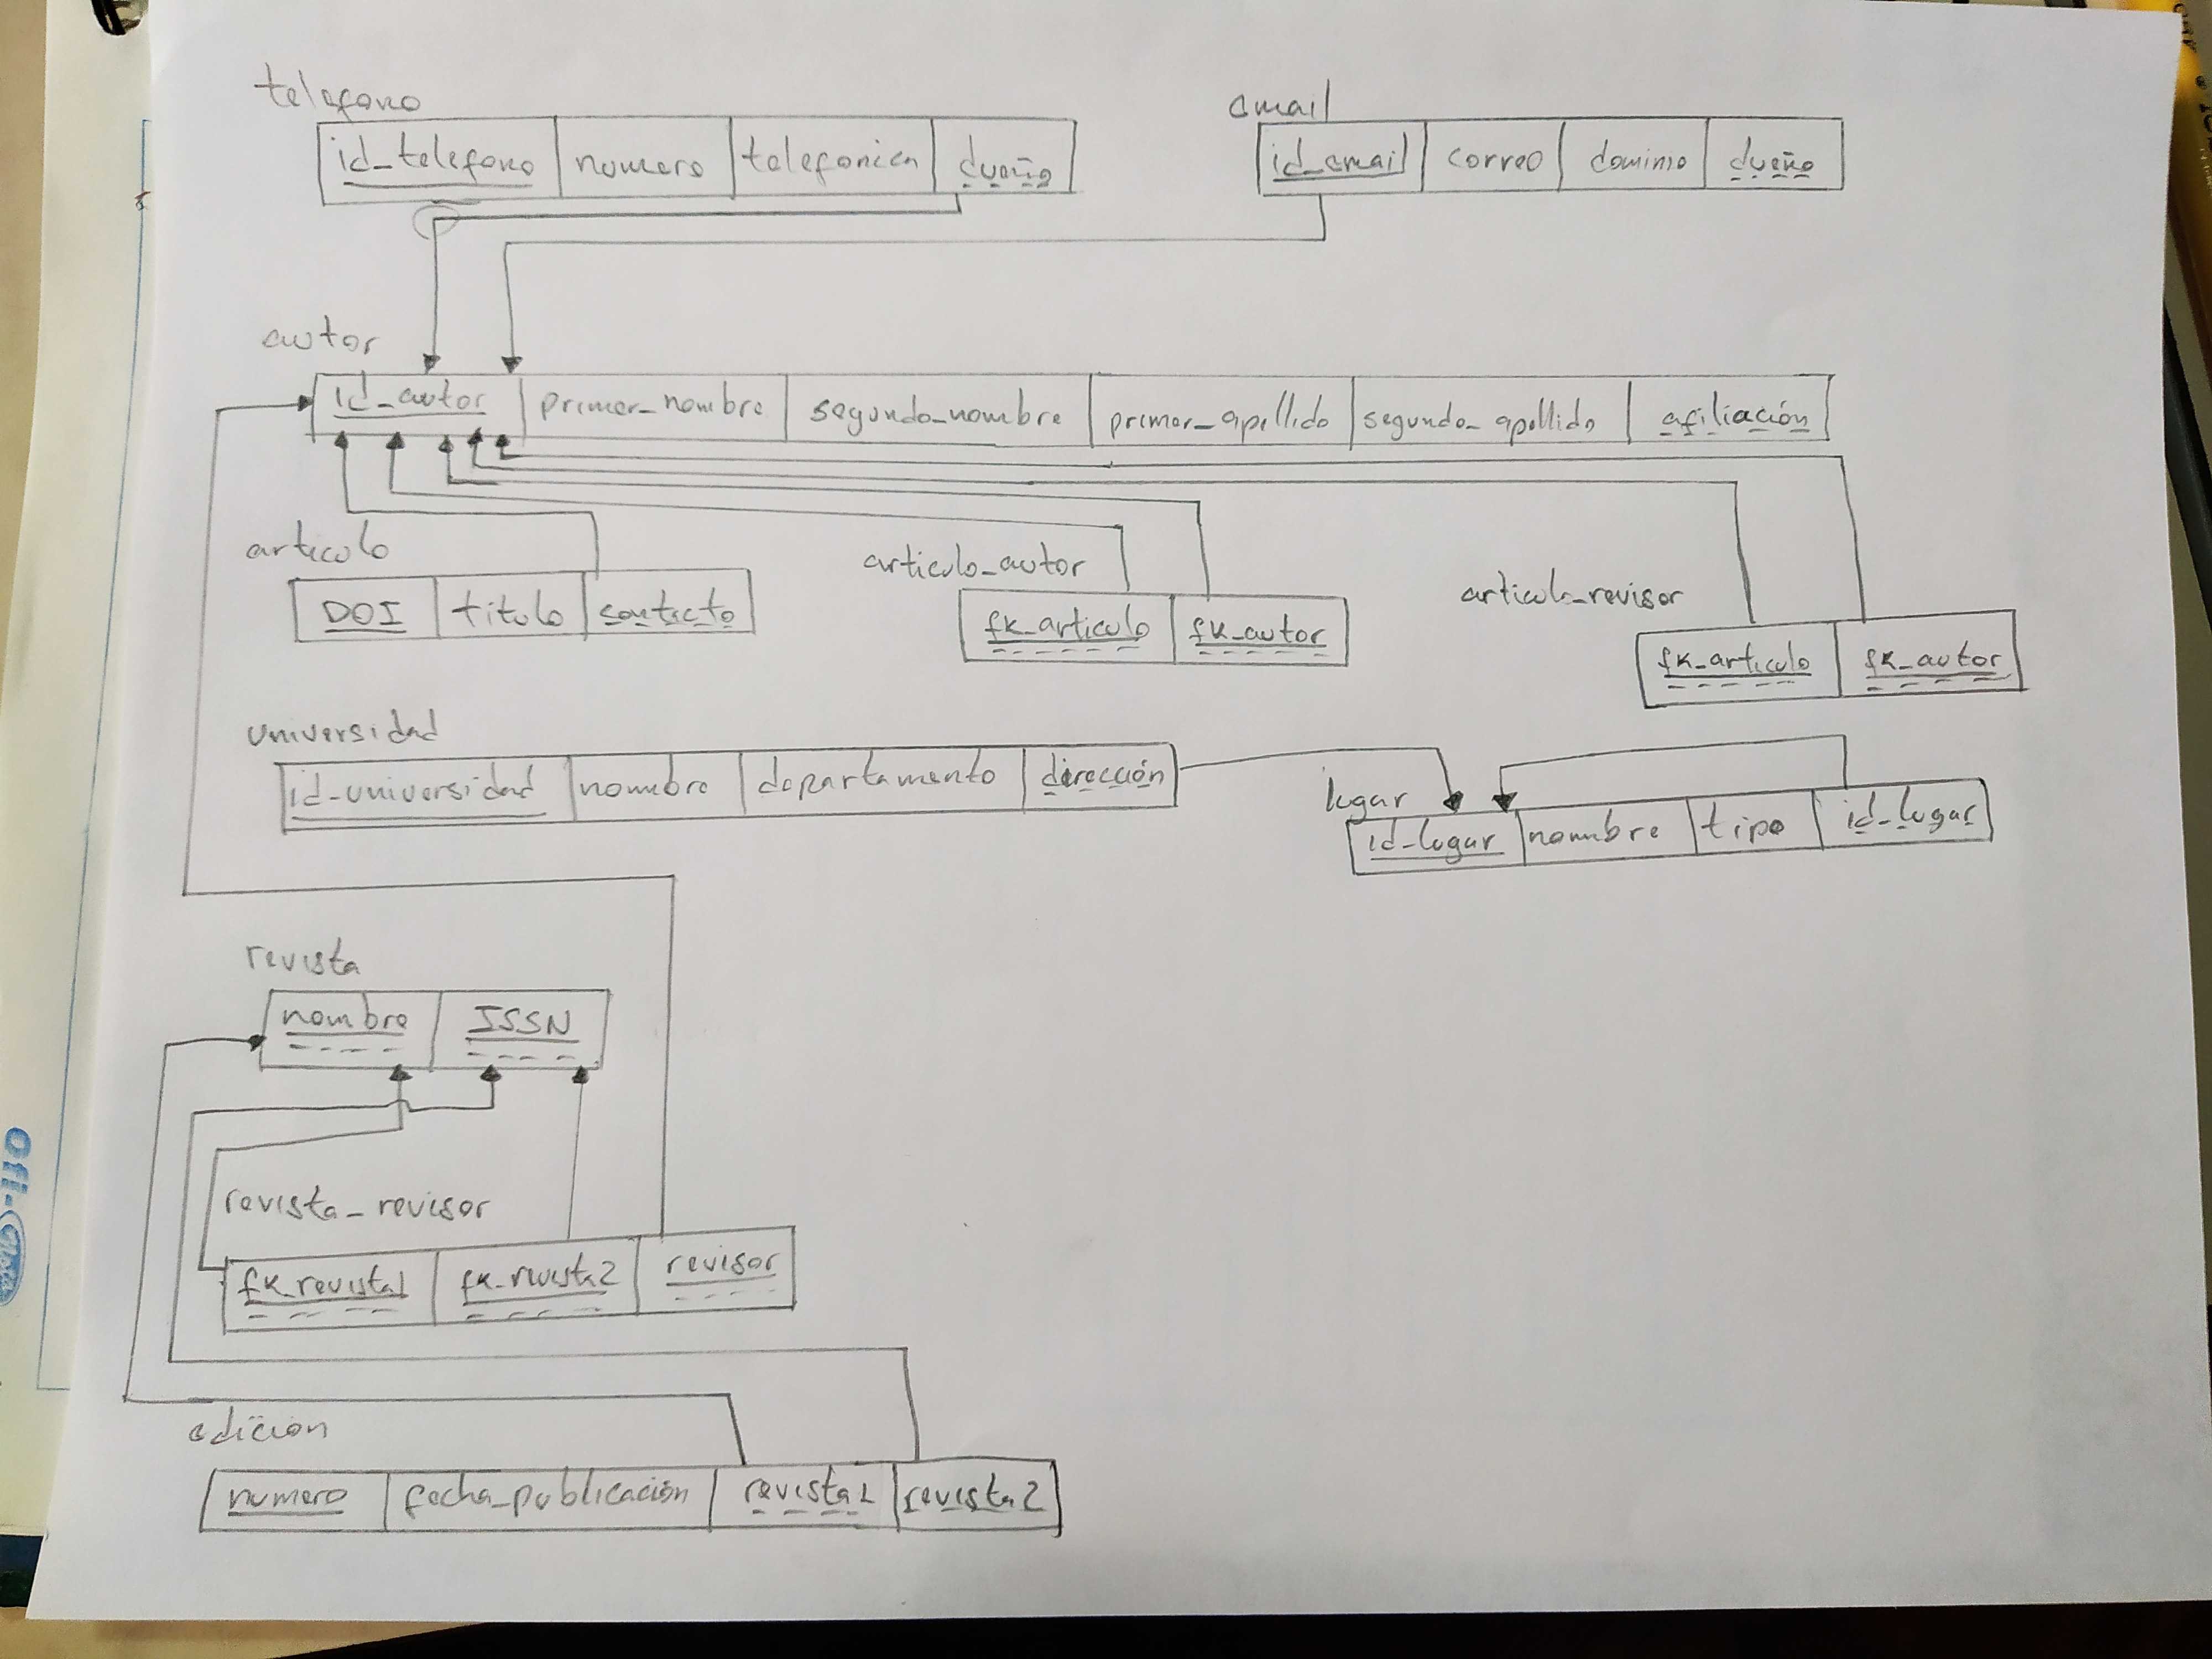 telefono
id_telefono numero telefonica dueño
email
id_email correo dominio dueño
autor
id_autor primer_nombre segundo_nombre primer_apellido segundo_apellido afiliación
articulo
DOI titulo contacto
articulo_autor
fk_articulo fk_autor
articulo_revisor
fk_articulo fk_autor
universidad
id_universidad nombre departamento dirección
lugar
id_lugar nombre tipo id_lugar
revista
nombre ISSN
revista_revisor
fk_revista1 fk_revista2 revisor
edicion
numero fecha_publicación revista1 revista2
Ofi-